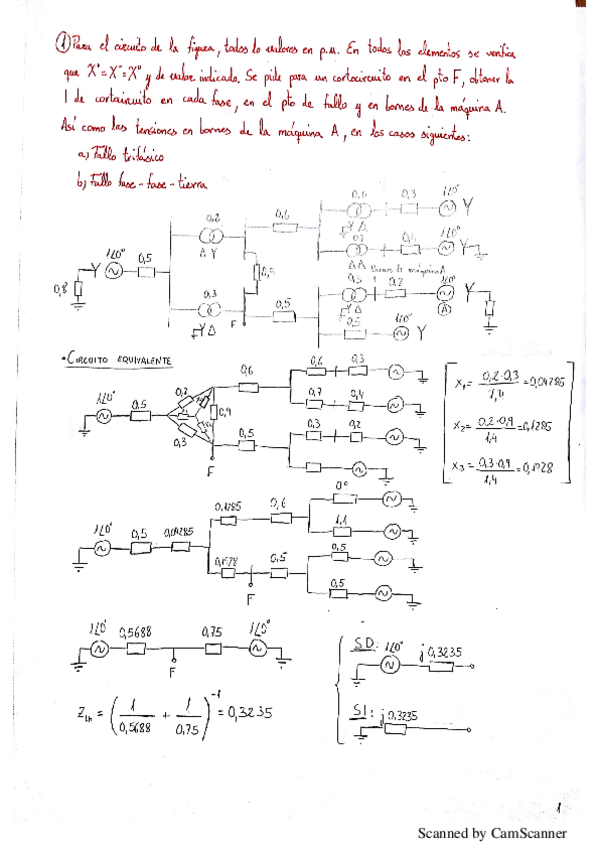 ① Para el circuito de la figura, todos lo valores en p.u. En todos los elementos se verifica
que X⁺=X⁻=X⁰ y de valor indicado. Se pide para un cortocircuito en el pto F, obtener la
I de cortocircuito en cada fase, en el pto de fallo y en bornes de la máquina A.
Así como las tensiones en bornes de la máquina A, en los casos siguientes:
a) Fallo trifásico
b) Fallo fase-fase-tierra
0,6 0,3 1∠0° Y
0,2 0,6 Y Δ 1∠0°
1∠0° 0,5 Δ Y 0,4 Y
Y Δ Δ Bornes de máquina A
0,8 0,3 0,5 0,3 0,2 1∠0° Y
Y Δ F Y Δ A
0,5 1∠0° Y
• CIRCUITO EQUIVALENTE
0,6 0,6 0,3
1∠0° 0,5 0,2 0,9 0,7 0,4
0,3 0,5 0,3 0,2
F
X₁ = 0,2·0,3 / 1,4 = 0,04285
X₂ = 0,2·0,9 / 1,4 = 0,1285
X₃ = 0,3·0,9 / 1,4 = 0,1928
0,1285 0,6 0,9
1∠0° 0,5 0,04285 1,1
0,1928 0,5 0,5
F 0,5
1∠0° 0,5688 0,75 1∠0°
F
Z_th = (1/0,5688 + 1/0,75)⁻¹ = 0,3235
SD: 1∠0° j0,3235
SI: j0,3235
1
Scanned by CamScanner